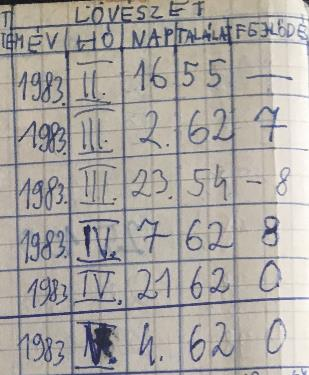 T LÖVÉSZET
TEM ÉV HÓ NAP TALÁLAT FEJLŐDÉ
1983. II. 16 55 —
1983. III. 2. 62 7
1983. III. 23. 54 - 8
1983. IV. 7 62 8
1983 IV. 21 62 0
1983 V. 4. 62 0